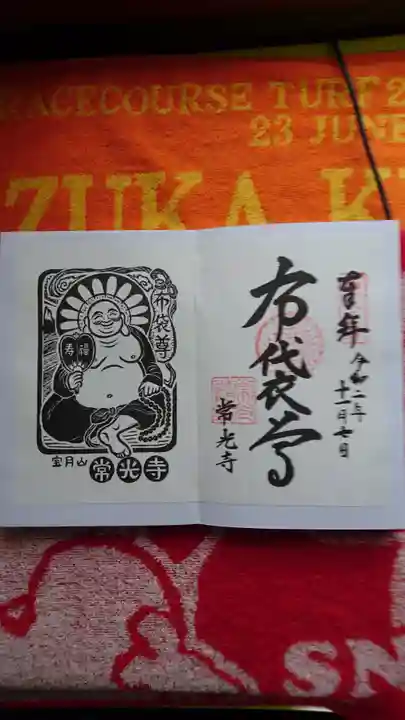 RACECOURSE TURF 2
23 JUNE
ZUKA K
布袋尊
寿福
宝月山 常光寺
奉拝 令和二年
十一月七日
布袋尊
常光寺
SN